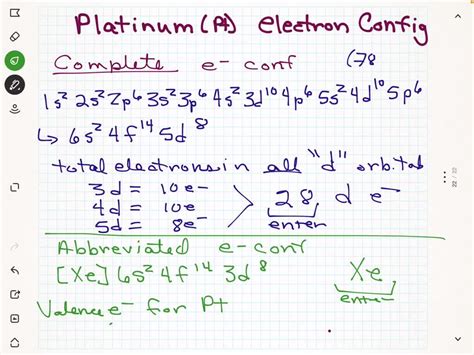 Platinum (Pt) Electron Config
Complete e- conf (78
1s² 2s² 2p⁶ 3s² 3p⁶ 4s² 3d¹⁰ 4p⁶ 5s² 4d¹⁰ 5p⁶
↳ 6s² 4f¹⁴ 5d⁸
total electrons in all "d" orbital
3d = 10e-
4d = 10e
5d = 8e-
28, d e-
enter
Abbreviated e-conf
[Xe] 6s² 4f¹⁴ 3d⁸
Xe
enter
Valence e- for Pt
22 / 22